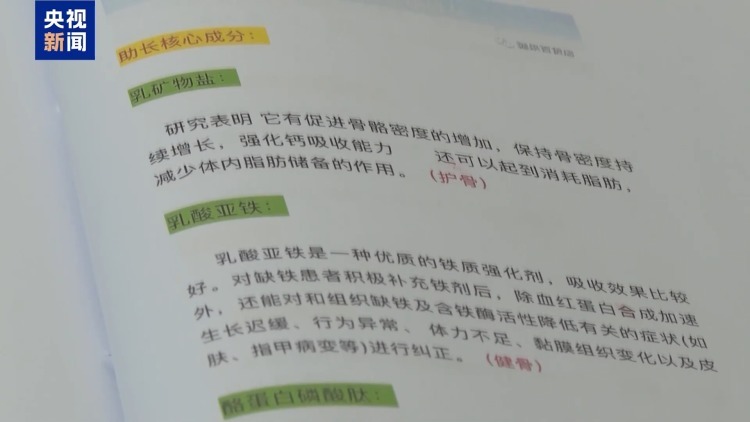 央视
新闻
助长核心成分：
乳矿物盐：
研究表明 它有促进骨骼密度的增加，保持骨密度持
续增长，强化钙吸收能力 还可以起到消耗脂肪，
减少体内脂肪储备的作用。（护骨）
乳酸亚铁：
乳酸亚铁是一种优质的铁质强化剂，吸收效果比较
好。对缺铁患者积极补充铁剂后，除血红蛋白合成加速
外，还能对和组织缺铁及含铁酶活性降低有关的症状(如
生长迟缓、行为异常、 体力不足、黏膜组织变化以及皮
肤、指甲病变等)进行纠正。（健骨）
酪蛋白磷酸肽：